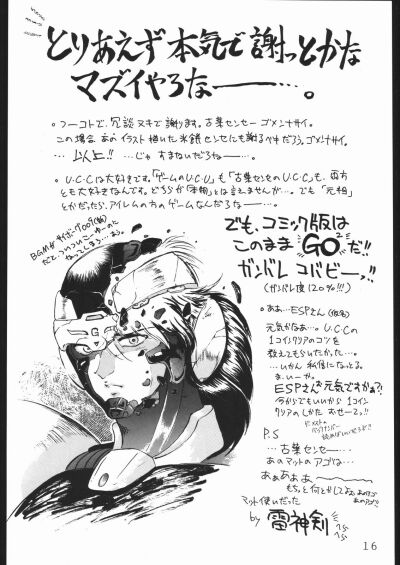 とりあえず本気で謝っとかな
マズイやろなー――。
。つーコトで、冗談ヌキで謝ります。古葉センセーゴメンナサイ。
この場合、ああイラスト描いた氷餅センセにも謝るべきだアン。ゴメンナサイ。
…以上!! …じゃすまないだろなー…。
。U.C.Cは大好きです。「ゲームのU.C.C」も「古葉センセのU.C.C」も、両方
とも大好きなんです。どちらが「本物」とは言えませんが…。でも「元祖」
とかだったら、アイレムの方のゲームなんだろなー…。
でも、コミック版は
このまま"GO"だ!!
ガンバレコバピーッ!!
(ガンバレ度120%!!!)
BGMがサイボーグ007(新)
だと、こーいうこーゆーのに
なってしまう…お。
。ああ…ESPさん(仮名)
元気かなあ…。U.C.Cの
1コインクリアのコツを
教えてもらいたかった…。
…いかん私信になってる。
ま、いーか。
ESPさん元気ですかぁ?
今からでもいいから1コイン
クリアのしかたおせーてッ!!
P.S
…古葉センセー…
あのマットのアゴは…
あぁぁぁぁ――
もちっと何とかしてよ
あのアゴ
マット使いだった
by 雷神剣
16